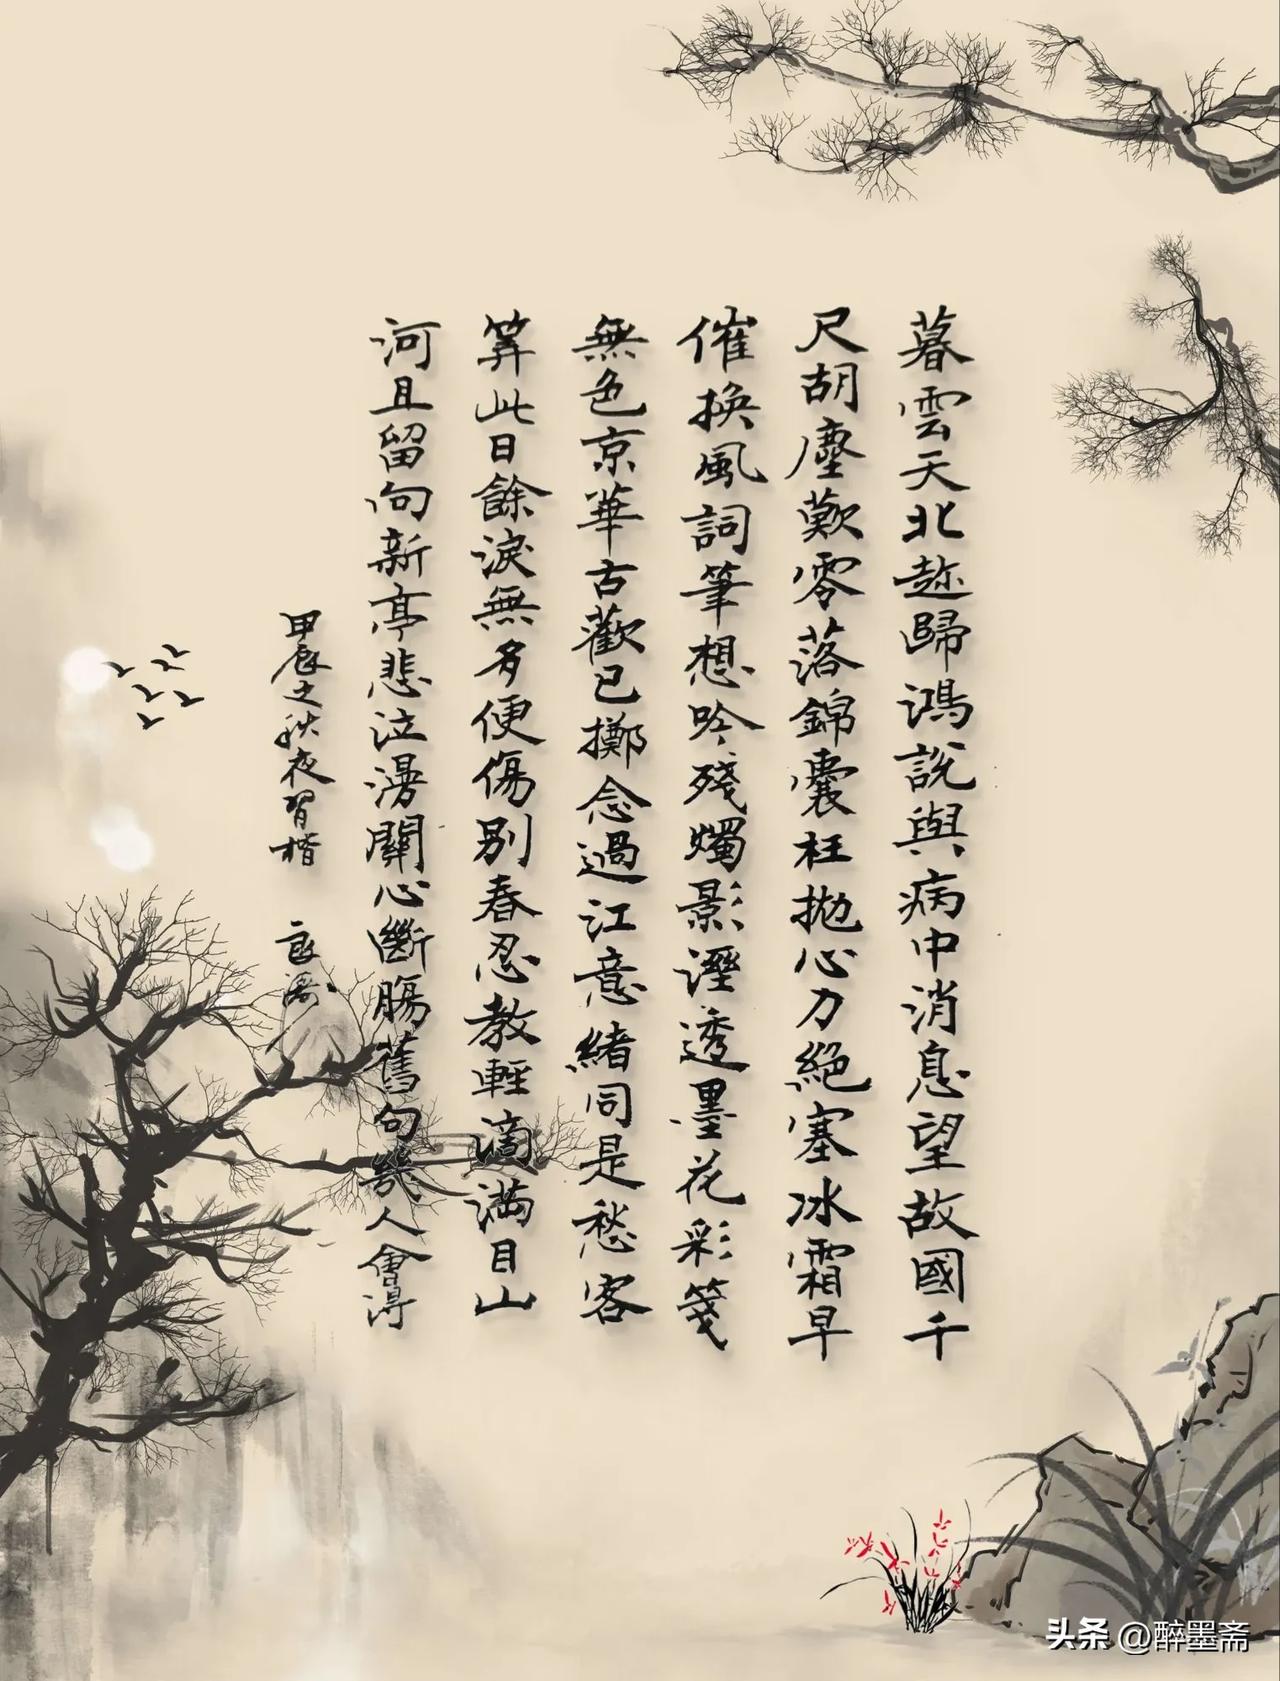 暮雲天北趂歸鴻說與病中消息望故國千
尺胡塵歎零落錦囊枉拋心力絕塞冰霜早
催換風詞筆想吟殘燭影溼透墨花彩箋
無色京華古歡已擲念過江意緒同是愁客
算此日餘淚無多便傷別春忍教輕滴滿目山
河且留句新亭悲泣漫關心斷腸舊句幾人會得
甲辰之秋夜習楷
头条 @醉墨斋